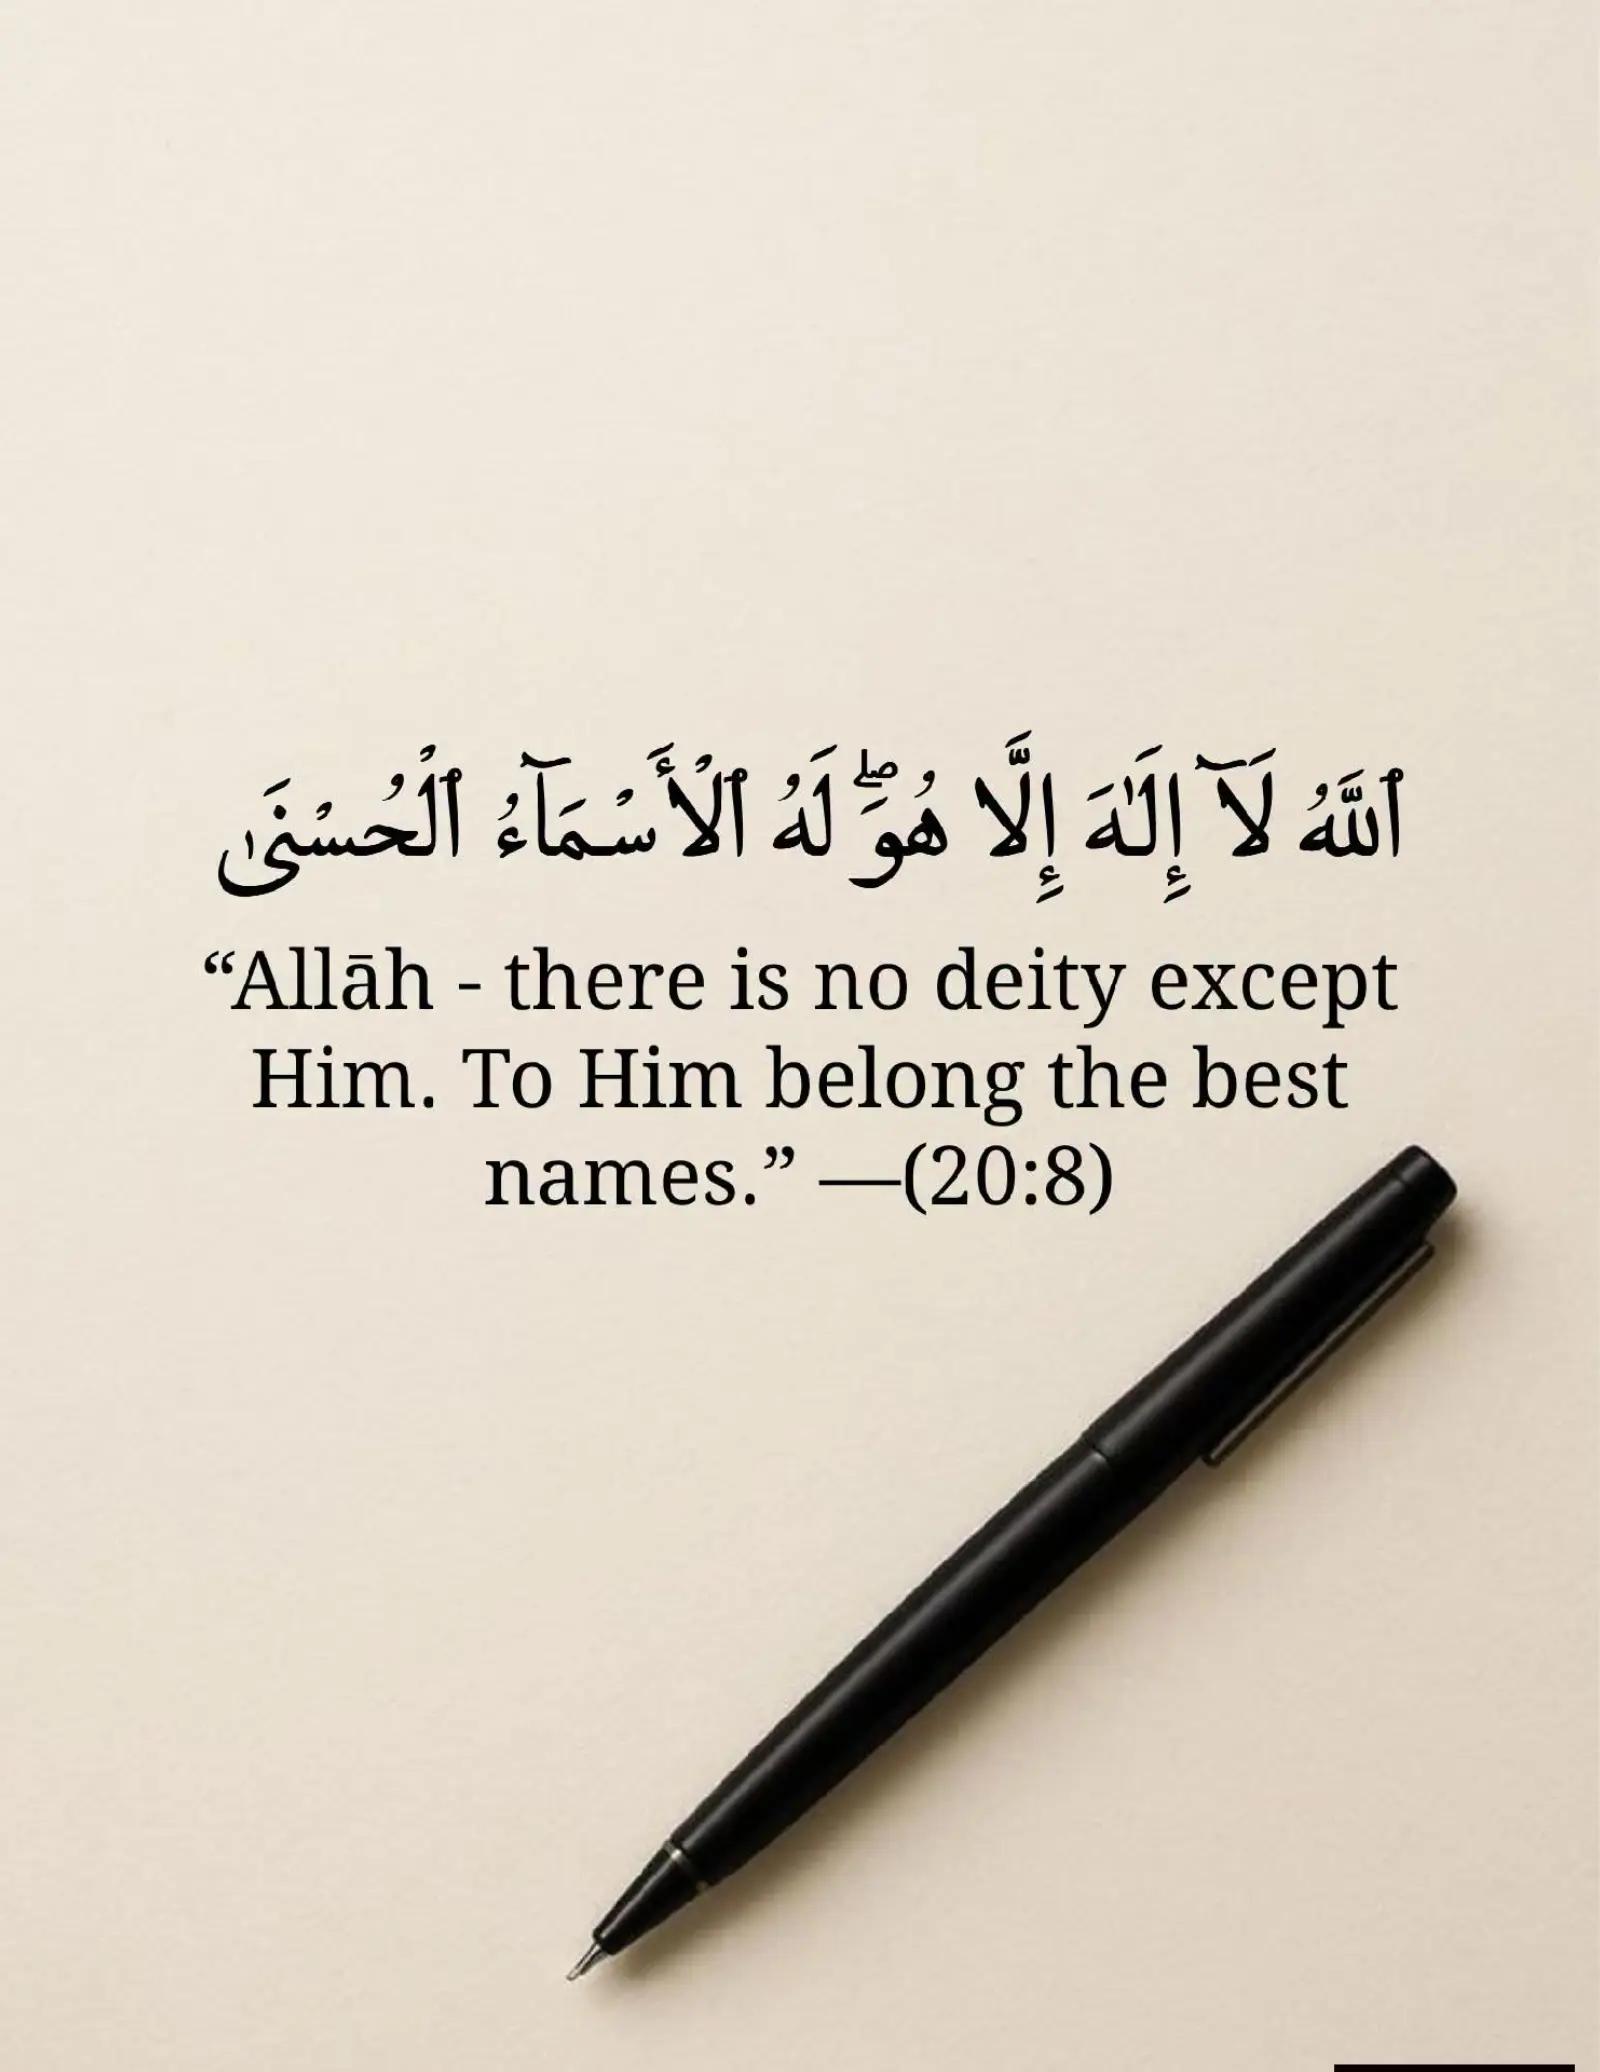 ٱللَّهُ لَآ إِلَـٰهَ إِلَّا هُوَ ۖ لَهُ ٱلْأَسْمَآءُ ٱلْحُسْنَىٰ
“Allāh - there is no deity except
Him. To Him belong the best
names.” —(20:8)